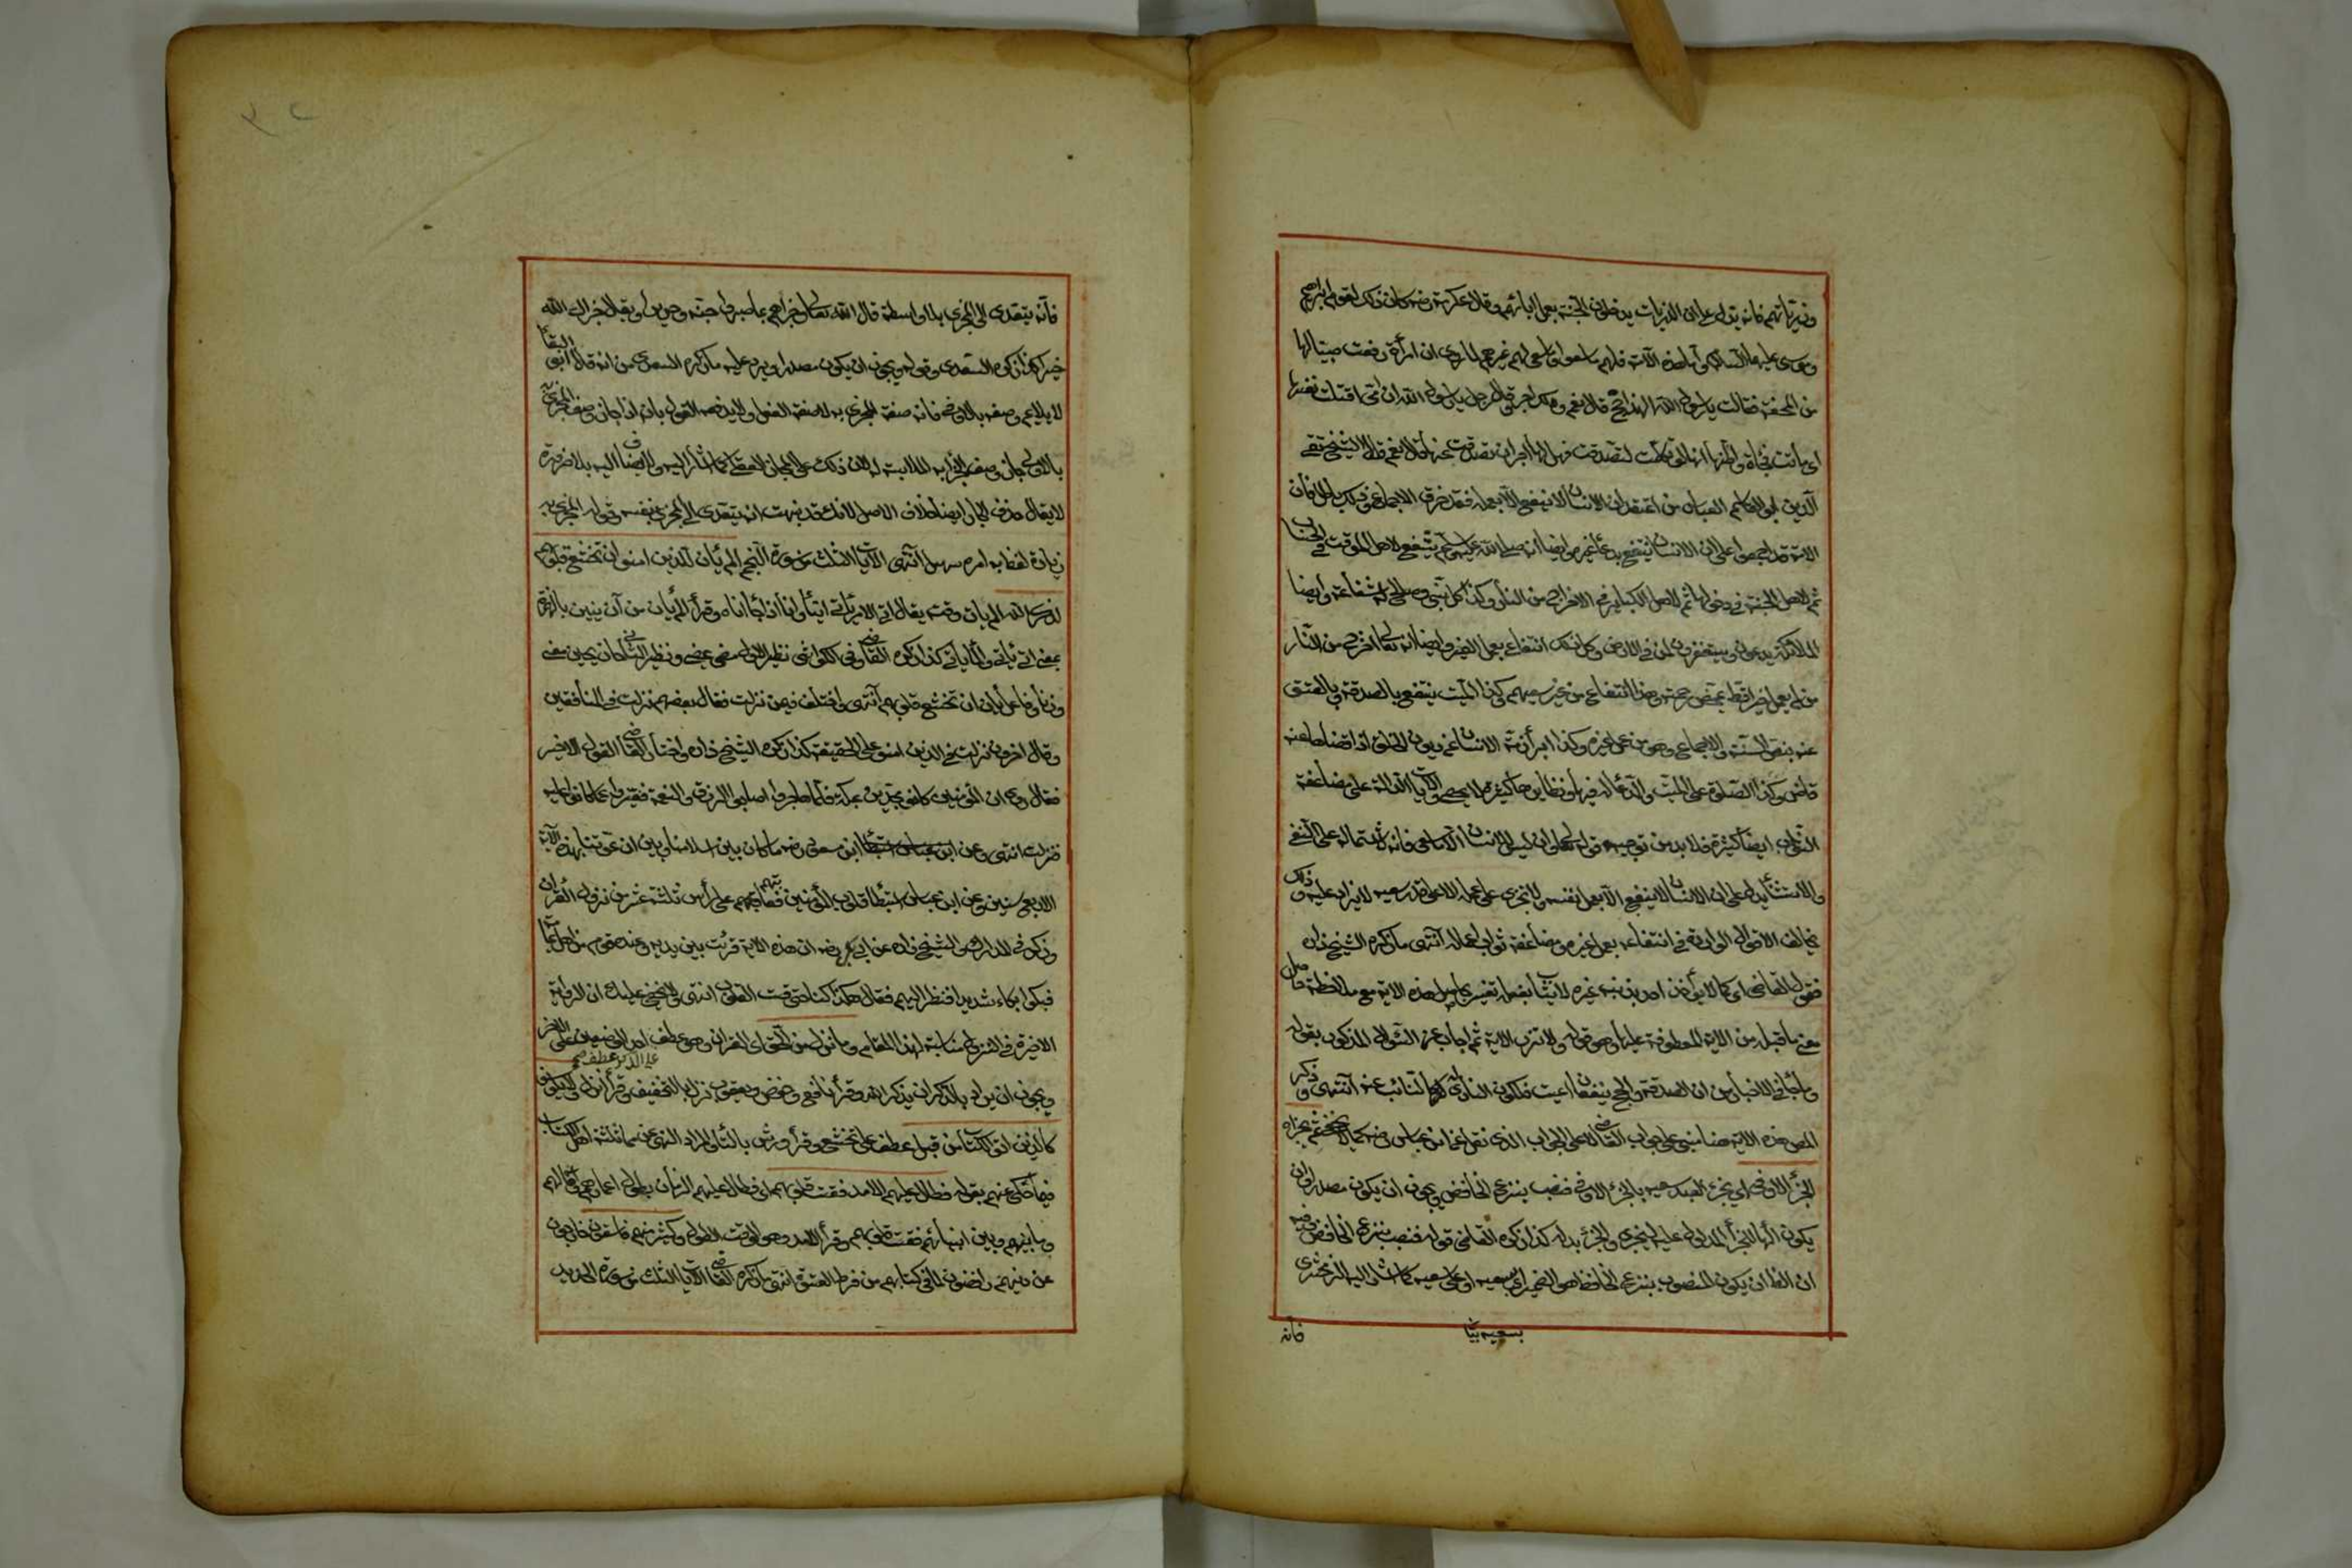 وذرياتهم فانه يدل على ان الذريات يدخلون الجنة بعمل ابائهم وقال عكرمة رضه كان ذلك لقوم ابراهيم
وموسى عليهما السلام واما هذه الامة فلهم ما سعوا وما سعى لهم غيرهم لما روى ان امرأة رفعت صبيا لها
من المحفة فقالت يا رسول الله الهذا حج قال نعم ولك اجر وقال رجل يا رسول الله ان امى اقتلت نفسها
اى ماتت فجأة واظنها لو تكلمت لتصدقت فهل لها اجر ان تصدقت عنها قال نعم قال الشيخ تقى
الدين ابو العباس من اعتقد ان الانسان لا ينتفع الا بعمله فقد خرق الاجماع وذلك باطل فان
الامة قد اجمعوا على ان الانسان ينتفع بدعاء غيره وايضا انه صلى الله عليه وسلم يشفع لاهل الموقف فى الحساب
ثم لاهل الجنة فى دخولها ثم لاهل الكبائر فى الاخراج من النار وكذا كل نبى وصالح له شفاعة وايضا
الملائكة يدعون ويستغفرون لمن فى الارض وكل ذلك انتفاع بعمل الغير وايضا انه تعالى اخرج من النار
من لم يعمل خيرا قط بمحض رحمته وهذا انتفاع من غير سعيهم وكذا الميت ينتفع بالصدقة وبالعتق
عنه بنص السنة والاجماع وهو من عمل غيره وكذا ابرأ ذمة الانسان عن ديون الخلق اذا قضاها عنه
قاض وكذا الصلوة على الميت والدعاء له فيها ونظايرها كثيرة لا يحصى والآيات الدالة على مضاعفة
الثواب ايضا كثيرة فلا بد من توجيه قوله تعالى وان ليس للانسان الا ما سعى فانه لاشتماله على النفى
والاستثناء يدل على ان الانسان لا ينتفع الا بعمل نفسه ولا يجزى على عمله الا على قدر سعيه لا يزاد عليه وذلك
يخالف الاقوال الواردة فى انتفاعه بعمل غيره ومضاعفة ثواب اعماله انتهى ما ذكره الشيخ زاده
فقول القاضى اى كما لا يؤاخذ احد بذنب غيره لا يثاب بفعله تفسير لهذه الاية مع ملاحظة
معنى ما قبله من الاية المعطوفة عليها وهو قوله ولا تزر الاية ثم اجاب عن السؤال المذكور بقوله
وما جاء فى الاخبار من ان الصدقة والحج ينفعان الميت فلكون الناوى له كالنائب عنه انتهى وذكر
المص هذه الاية هنا مبنى على جواب القاضى لا على الجواب الذى نقل عن ابن عباس رضه ثم يجزاه
الجزاء الاوفى اى يجزى العبد سعيه بالجزاء الاوفى فنصب بنزع الخافض ويجوز ان يكون مصدرا وان
يكون الهاء للجزاء المدلول عليه بيجزى والجزاء بدله كذا ذكره القاضى قوله فنصب بنزع الخافض فيه
ان الظ ان يكون المنصوب بنزع الخافض هو الضمير اى بسعيه او على سعيه كما اشار اليه الزمخشرى
بسعيه
فانه
فانه يتعدى الى المجزى بلا واسطة قال الله تعالى وجزاهم بما صبروا جنة وحريرا ويقال جزاك الله
خيرا كذا ذكره السعدى وقوله ويجوز ان يكون مصدرا ويرد عليه ما ذكره السعدى من انه قال ابو البقاء
لا يلايم وصفه بالاوفى فانه صفة المجزى به لا صفة الفعل ولا يدفعه القول بانه اذا جاز وصف المجزى
بالاوفى جاز وصف الجزاء به لملابسته له لان ذلك على المجاز العقلى كما اشار اليه ولا يصار اليه بلا ضرورة
لا يقال حذف الجار ايضا خلاف الاصل لانك قد نبهت انه يتعدى الى المجزى بنفسه وقوله المجزى به
زيادة لفظ به امره سهل انتهى الآيات الثلث من سورة النجم الم يأن للذين امنوا ان تخشع قلوبهم
لذكر الله الم يأت وقت يقال انى الامر يأنى انيا وانا اذا جاء اناه وقرأ الم يأن من آن يئين بالهمزة
بمعنى انى يأنى والما يأن كذا ذكره القاضى وفى الكواشى نظير الاول مضى يمضى ونظير الثانى حان يحين معنى
وزنا وفاعل يأن ان تخشع قلوبهم انتهى واختلف فيمن نزلت فقال بعضهم نزلت فى المنافقين
وقال اخرون نزلت فى الذين امنوا على الحقيقة كذا ذكره الشيخ زاده واختار القاضى القول الاخير
فقال روى ان المؤمنين كانوا مجدبين بمكة فلما هاجروا اصابوا الرزق والنعمة ففتروا عما كانوا عليه
فنزلت انتهى وعن ابن مسعود رضه ما كان بين اسلامنا وبين ان عوتبنا بهذه الآية
الا اربع سنين وعن ابن عباس استبطأ قلوب المؤمنين فعاتبهم على رأس ثلثة عشر من نزول القرآن
وذكر فى المدارك والشيخ زاده عن ابى بكر رضه ان هذه الاية قرئت بين يديه وعنده قوم من اهل اليمامة
فبكوا بكاء شديدا فنظر اليهم فقال هكذا كنا حتى قست القلوب انتهى ولا يخفى عليك ان الرواية
الاخيرة فى النزول مناسبة لهذا المقام وما نزل من الحق اى القران وهو عطف احد الوصفين على الاخر
على الذكر عطف
ويجوز ان يراد بالذكر ان يذكر الله وقرأ نافع وحفص ويعقوب نزل بالتخفيف وقرأ انزل ولا يكونوا
كالذين اوتوا الكتاب من قبل عطف على تخشع وقرأ ورش بالتاء والمراد النهى عن مماثلة اهل الكتاب
فيما حكى عنهم بقوله فطال عليهم الامد فقست قلوبهم اى فطال عليهم الزمان بطول اعمارهم وآمالهم
وما بينهم وبين انبيائهم فقست قلوبهم وقرأ الامد وهو الوقت الاطول وكثير منهم فاسقون خارجون
عن دينهم رافضون لما فى كتابهم من فرط القسوة انتهى ما ذكره القاضى الآيات الثلث من سورة الحديد